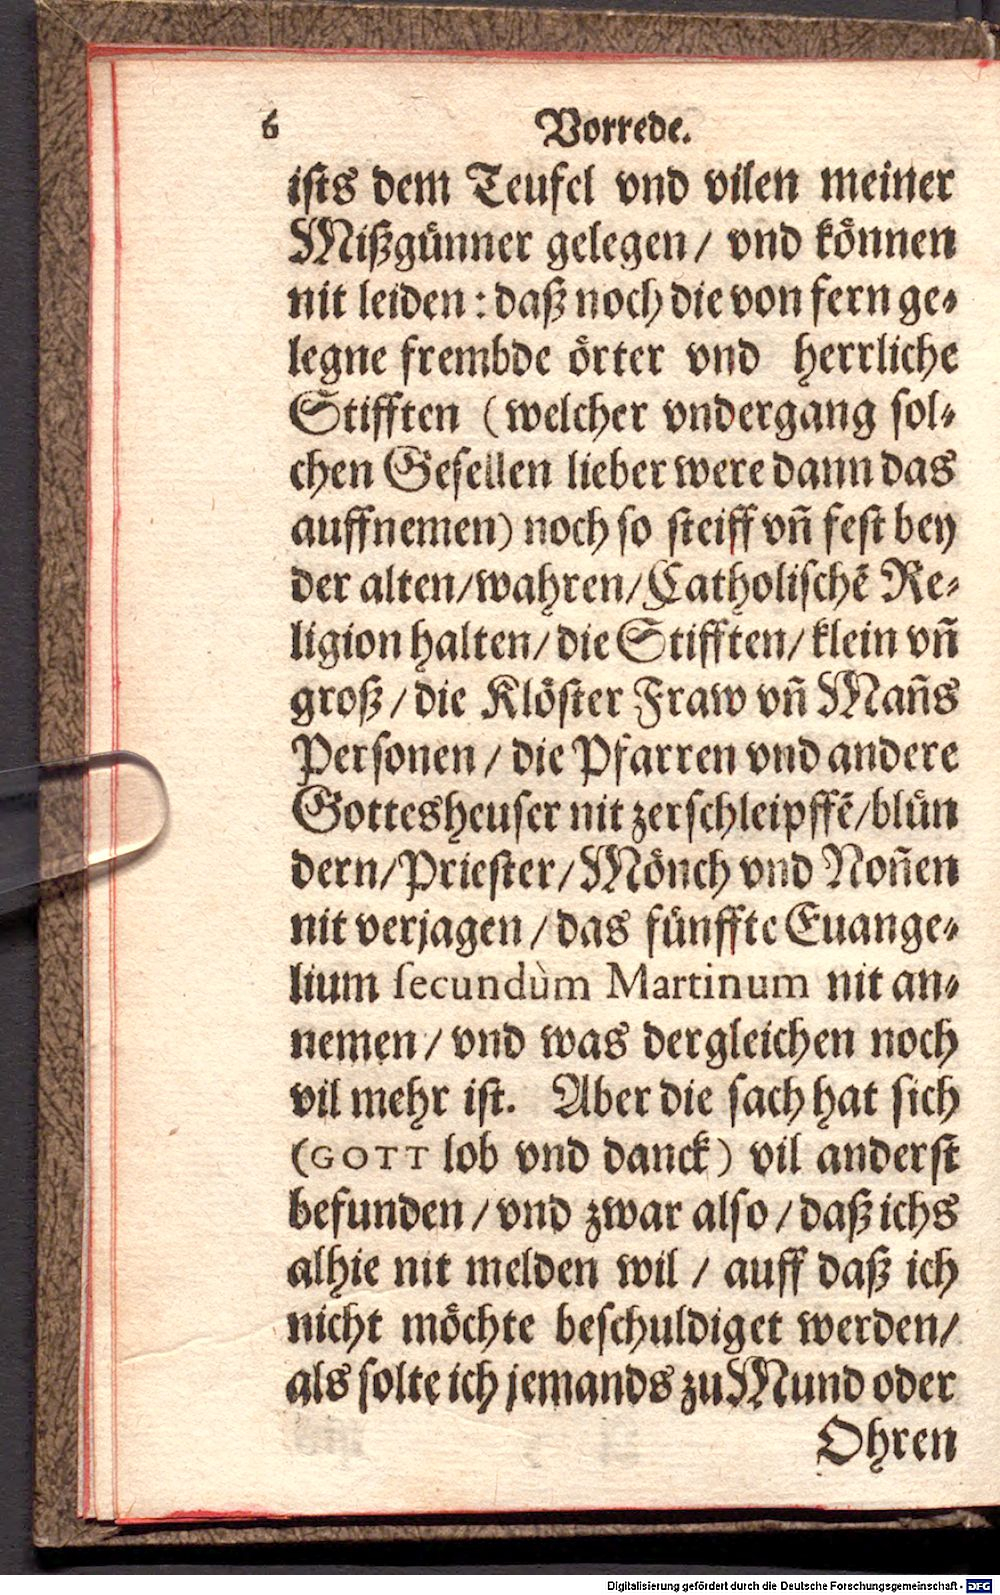 6 Vorrede.
iſts dem Teufel vnd vilen meiner
Mißgünner gelegen/ vnd können
nit leiden: daß noch die von fern ge-
legne frembde örter vnd herrliche
Stifften (welcher vndergang ſol-
chen Geſellen lieber were dann das
auffnemen) noch ſo ſteiff vñ feſt bey
der alten/wahren/Catholiſchẽ Re-
ligion halten/die Stifften/klein vñ
groß/die Klöſter Fraw vñ Mañs
Perſonen/ die Pfarren vnd andere
Gottesheuſer nit zerſchleipffẽ/blün
dern/Prieſter/Mönch vnd Noñen
nit verjagen/das fünffte Euange-
lium ſecundùm Martinum nit an-
nemen/ vnd was dergleichen noch
vil mehr iſt. Aber die ſach hat ſich
(GOTT lob vnd danck) vil anderſt
befunden/vnd zwar alſo/daß ichs
alhie nit melden wil/ auff daß ich
nicht möchte beſchuldiget werden/
als ſolte ich jemands zu Mund oder
Ohren
Digitalisierung gefördert durch die Deutsche Forschungsgemeinschaft - DFG